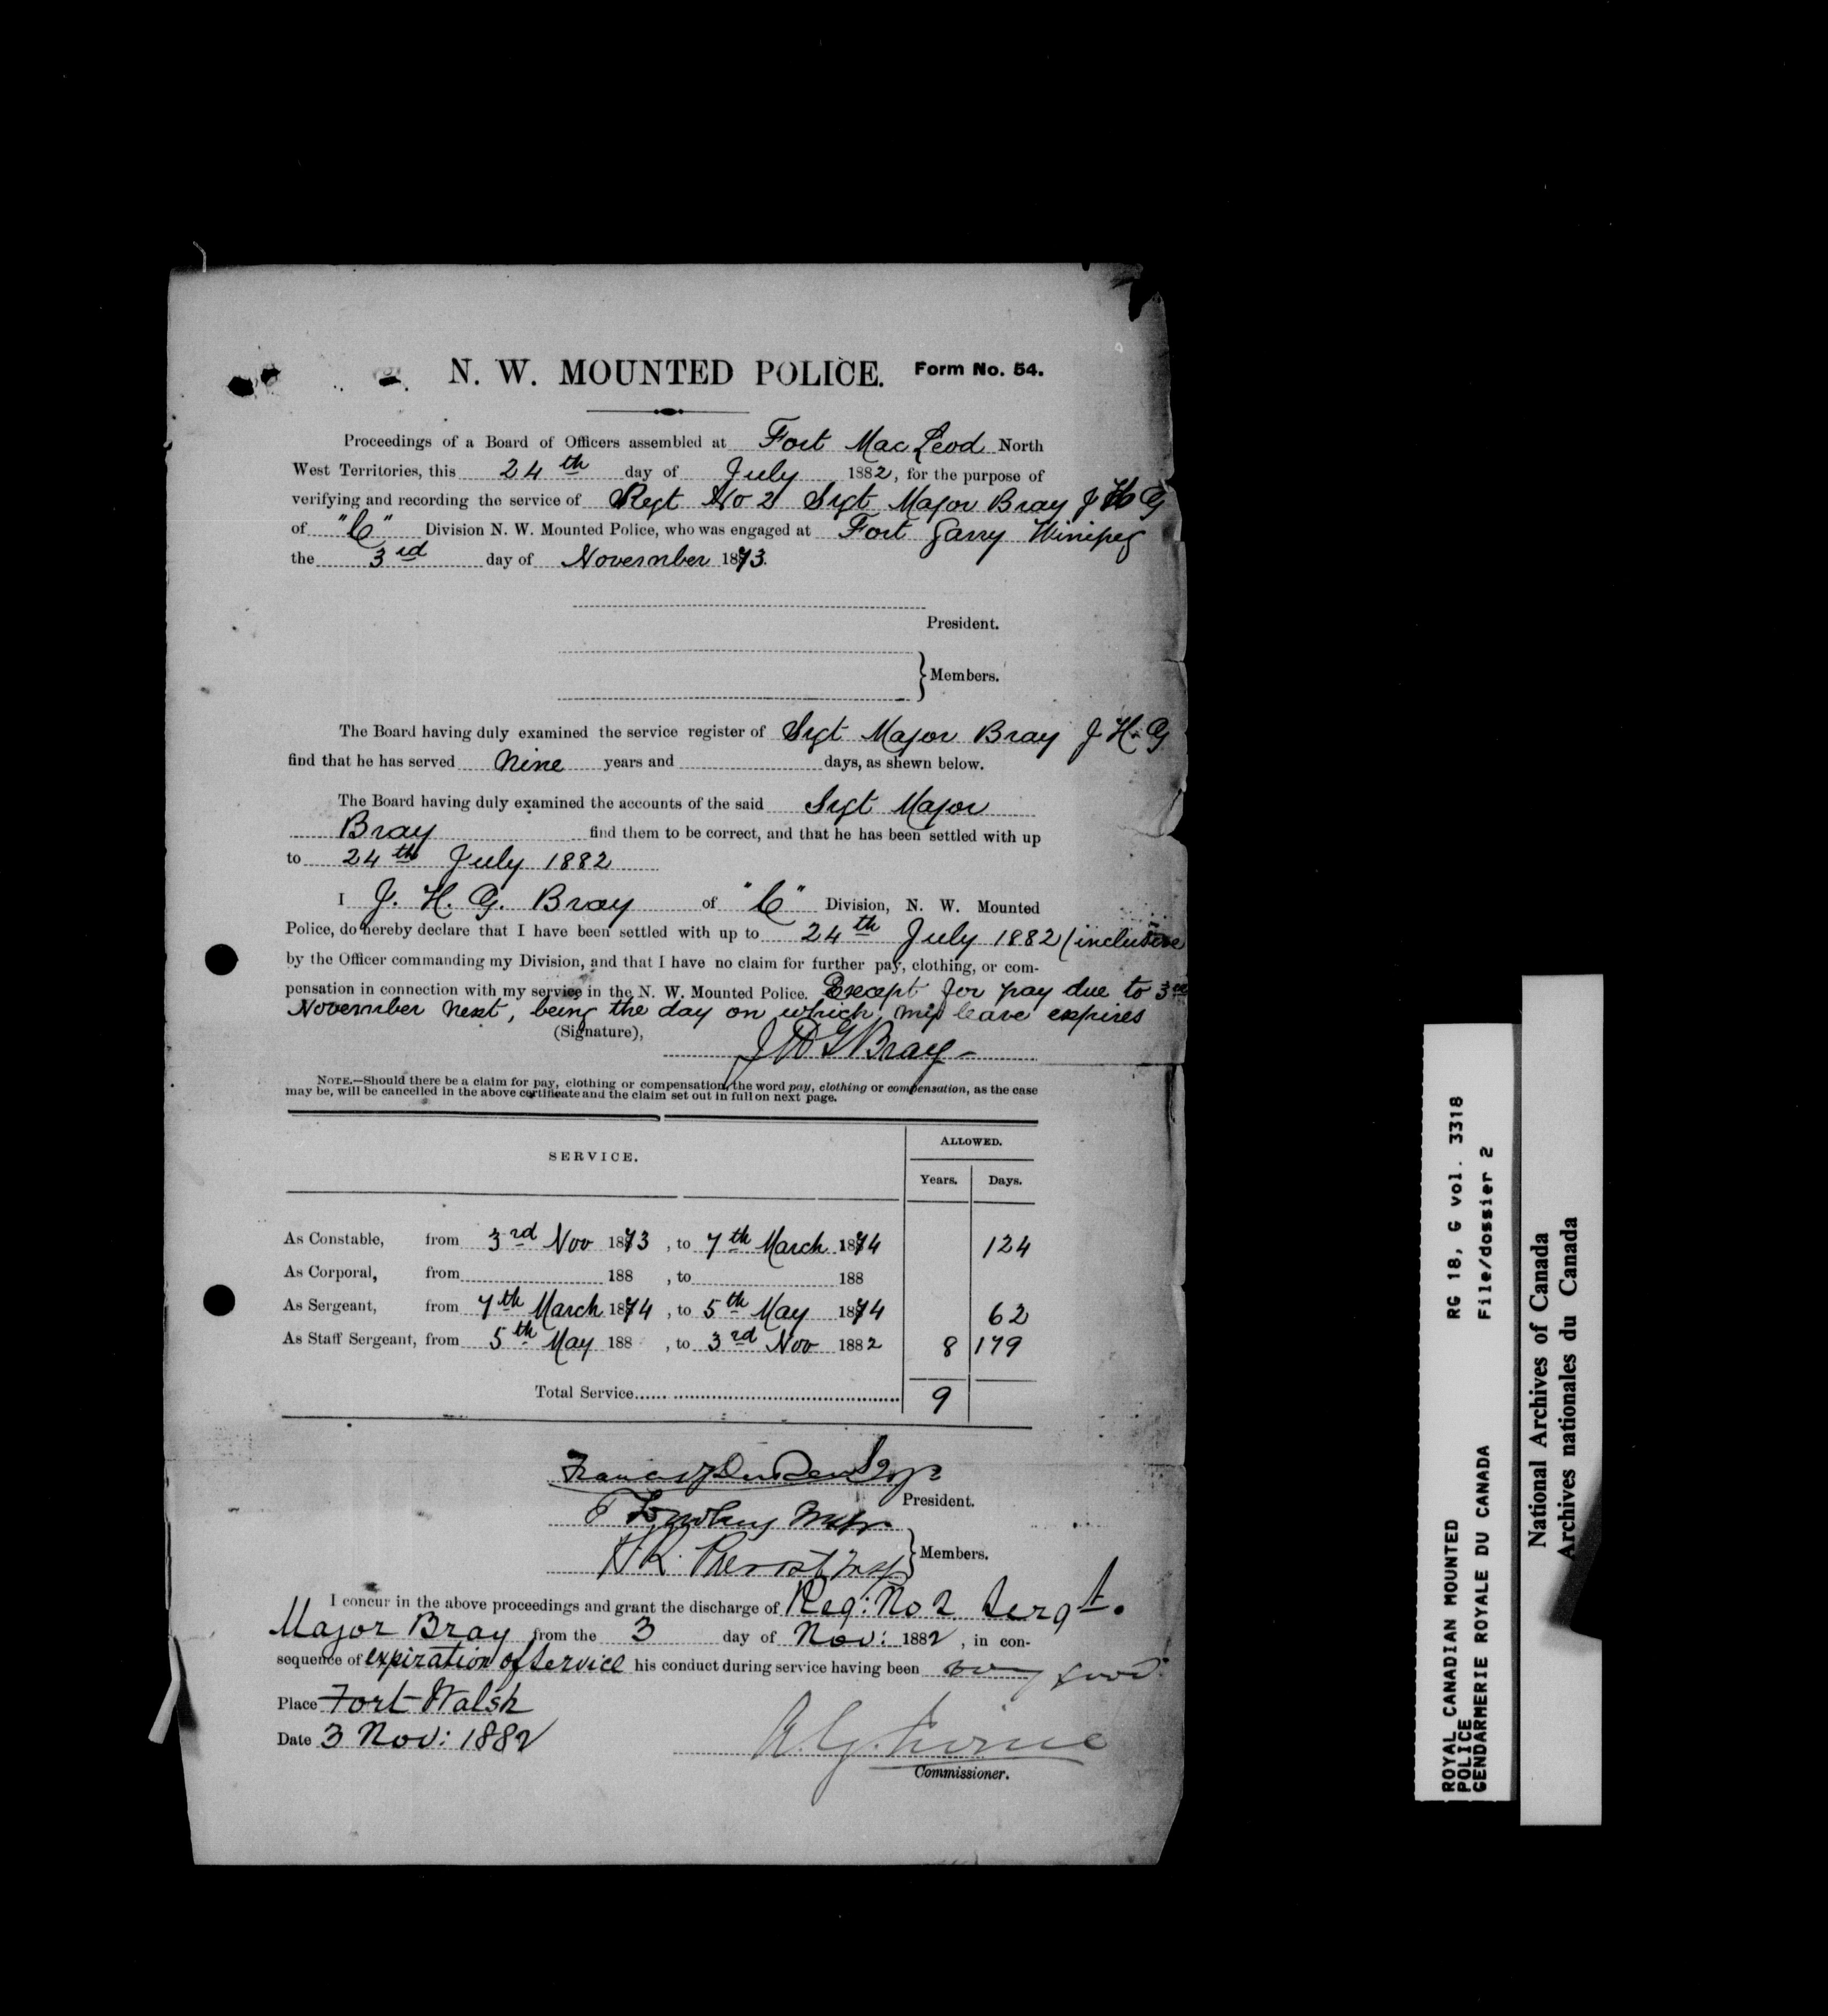 N. W. MOUNTED POLICE. Form No. 54.
Proceedings of a Board of Officers assembled at Fort MacLeod North
West Territories, this 24th day of July 1882, for the purpose of
verifying and recording the service of Regt No 2 Sgt Major Bray J H G
of "C" Division N. W. Mounted Police, who was engaged at Fort Garry Winipeg
the 3rd day of November 1873.
President.
Members.
The Board having duly examined the service register of Sgt Major Bray J H. G
find that he has served Nine years and days, as shewn below.
The Board having duly examined the accounts of the said Sgt Major
Bray find them to be correct, and that he has been settled with up
to 24th July 1882
I J. H. G. Bray of "C" Division, N. W. Mounted
Police, do hereby declare that I have been settled with up to 24th July 1882 (inclusive
by the Officer commanding my Division, and that I have no claim for further pay, clothing, or com-
pensation in connection with my service in the N. W. Mounted Police. Except for pay due to 3rd
November next, being the day on which my leave expires
(Signature), J H G Bray
NOTE.—Should there be a claim for pay, clothing or compensation, the word pay, clothing or compensation, as the case
may be, will be cancelled in the above certificate and the claim set out in full on next page.
SERVICE. ALLOWED.
Years. Days.
As Constable, from 3rd Nov 1873, to 7th March 1874 124
As Corporal, from 188 , to 188
As Sergeant, from 7th March 1874, to 5th May 1874 62
As Staff Sergeant, from 5th May 188 , to 3rd Nov 1882 8 179
Total Service 9
Francis
President.
Members.
I concur in the above proceedings and grant the discharge of Reg: No 2 Sergt.
Major Bray from the 3 day of Nov: 1882, in con-
sequence of expiration of Service his conduct during service having been very good
Place Fort Walsh
Date 3 Nov: 1882
A. G. Irvine
Commissioner.
ROYAL CANADIAN MOUNTED RG 18, G vol. 3318
POLICE File/dossier 2
GENDARMERIE ROYALE DU CANADA
National Archives of Canada
Archives nationales du Canada